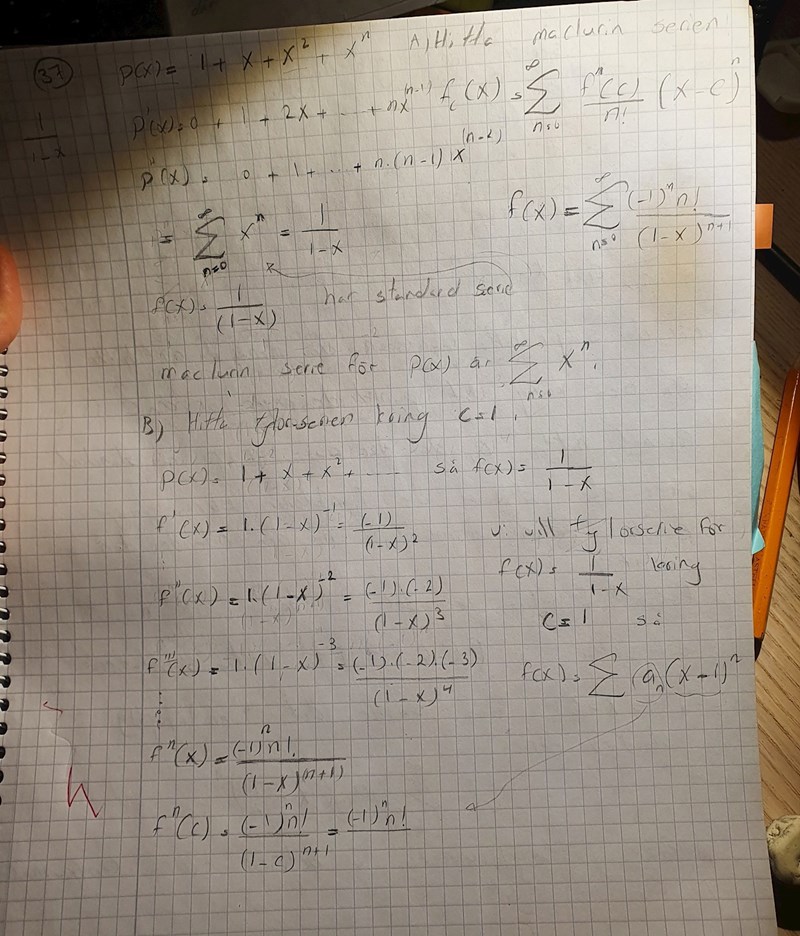 37) p(x) = 1 + x + x² + xⁿ A) Hitta maclurin serien
1/(1-x) p'(x) = 0 + 1 + 2x + ... + nx^(n-1) f_c(x) = ∑_{n=0}^∞ fⁿ(c)/n! (x-c)ⁿ
p''(x) = 0 + 1 + ... + n·(n-1) x^(n-2)
= ∑_{n=0}^∞ xⁿ = 1/(1-x) f(x) = ∑_{n=0}^∞ (-1)ⁿ n!/(1-x)^{n+1}
f(x) = 1/(1-x) har standard serie
maclurin serie för p(x) är ∑_{n=0}^∞ xⁿ.
B) Hitta tylor-serien kring c=1.
p(x) = 1 + x + x² + ---- så f(x) = 1/(1-x)
f'(x) = 1·(1-x)^{-1} = (-1)/(1-x)² vi vill tylorserie för
f''(x) = 1·(1-x)^{-2} = (-1)·(-2)/(1-x)³ f(x) = 1/(1-x) kring
c=1 så
f'''(x) = 1·(1-x)^{-3} = (-1)·(-2)·(-3)/(1-x)⁴ f(x) = ∑ aₙ(x-1)ⁿ
fⁿ(x) = (-1)ⁿ n!/(1-x)^(n+1)
fⁿ(c) = (-1)ⁿ n!/(1-c)^{n+1} = (-1)ⁿ n!